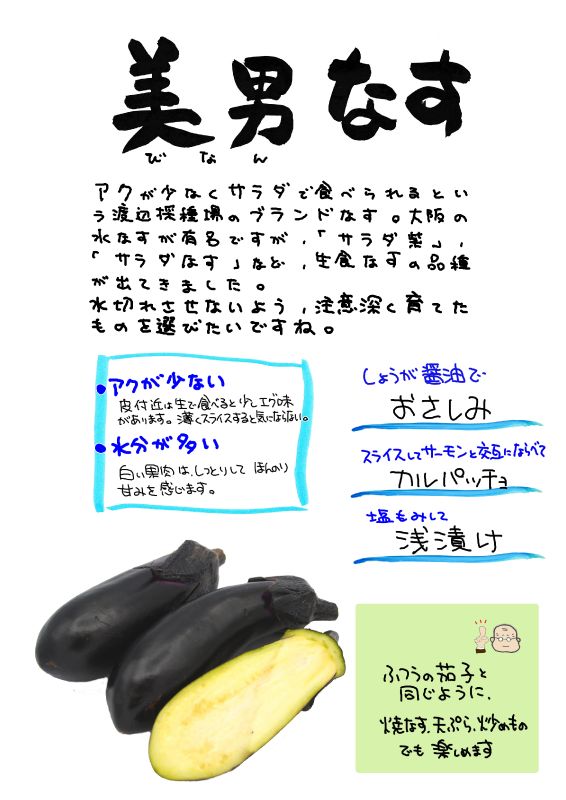 美男なす
びなん
アクが少なくサラダで食べられるとい
う渡辺採種場のブランドなす。大阪の
水なすが有名ですが、「サラダ紫」、
「サラダなす」など、生食なすの品種
が出てきました。
水切れさせないよう、注意深く育てた
ものを選びたいですね。
・アクが少ない
皮付近は生で食べると少しエグ味
があります。薄くスライスすると気にならない。
・水分が多い
白い果肉は、しっとりして ほんのり
甘みを感じます。
しょうが醤油で
おさしみ
スライスしてサーモンと交互にならべて
カルパッチョ
塩もみして
浅漬け
ふつうの茄子と
同じように、
焼なす、天ぷら、炒めもの
でも 楽しめます